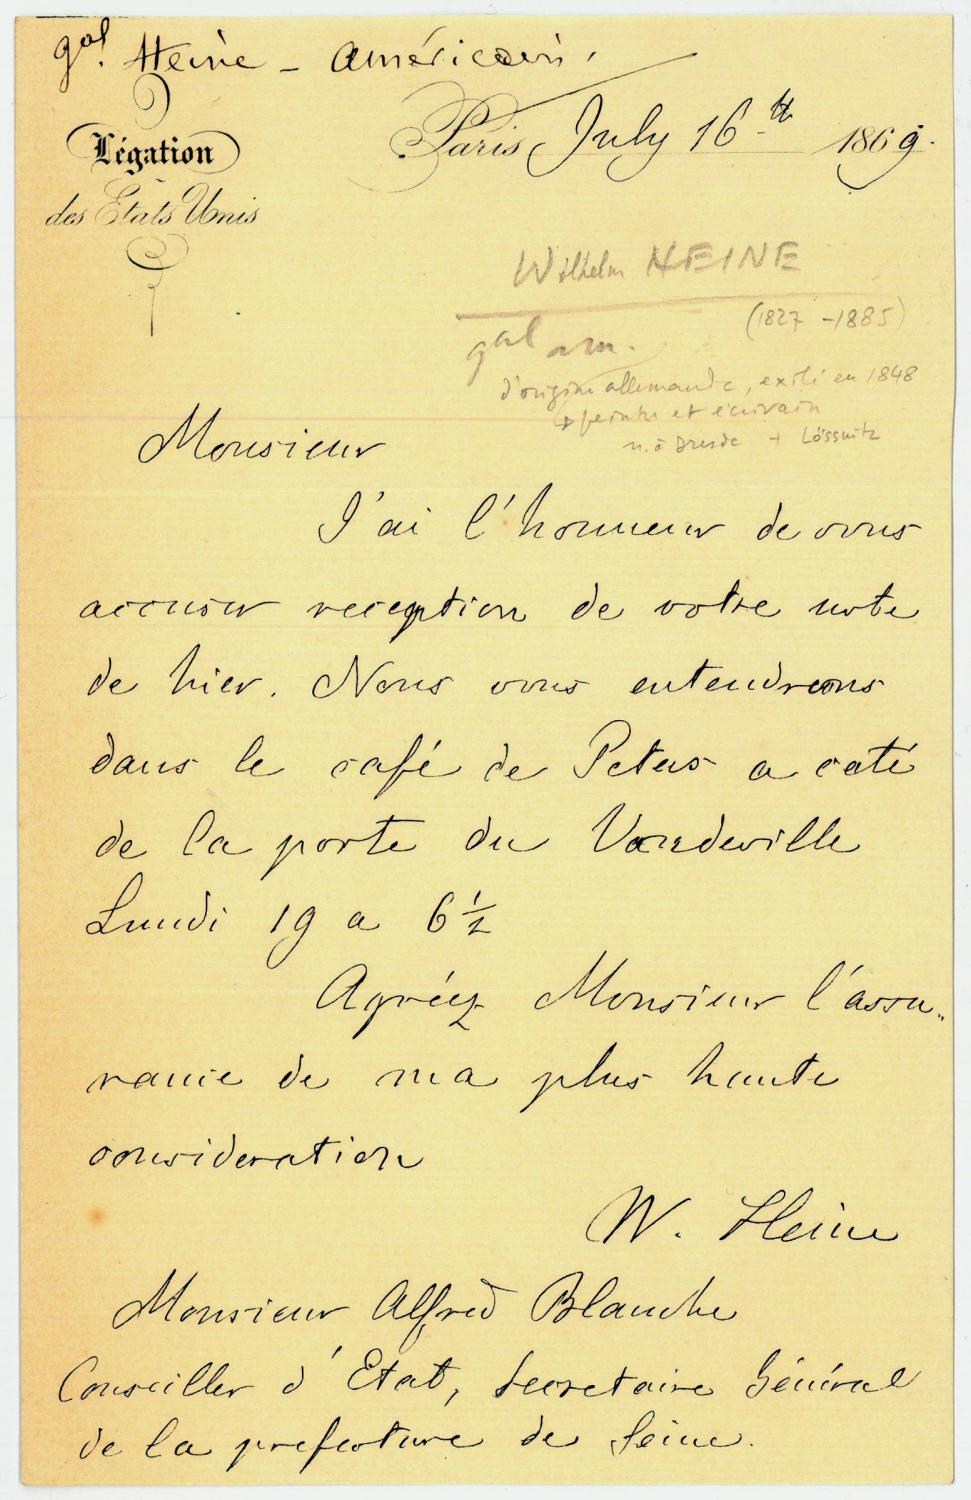 gal. Heine - Américain.
Légation
des États Unis
Paris July 16th 1869.
Wilhelm HEINE
(1827 - 1885)
gal am.
d'origine allemande, exilé en 1848
→ peintre et écrivain
n. à Dresde + Lössnitz
Monsieur
J'ai l'honneur de vous
accuser reception de votre note
de hier. Nous vous entendrons
dans le café de Peters a coté
de la porte du Vaudeville
Lundi 19 a 6 1/2
Agréez Monsieur l'assu-
rance de ma plus haute
consideration
W. Heine
Monsieur Alfred Blanche
Conseiller d'Etat, Secretaire Général
de la prefecture de Seine.